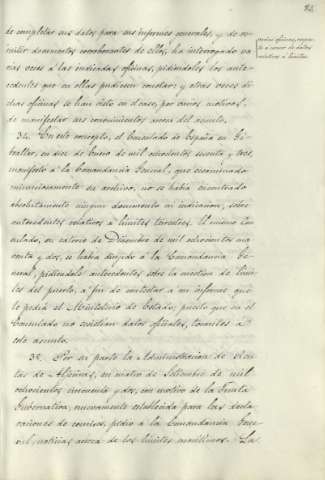 82.
varias oficinas, respec-
to a carecer de datos
relativos a límites.
de completar sus datos para sus informes generales, y de re-
unir documentos corroborantes de ellos, ha interrogado va-
rias veces a las indicadas oficinas, pidiéndoles los ante-
cedentes que en ellas pudiesen constar; y otras veces di-
chas oficinas se han visto en el caso, por varios motivos,
de manifestar sus conocimientos acerca del asunto.
34. En este concepto, el Consulado de España en Gi-
braltar, en diez de Enero de mil ochocientos sesenta y tres,
manifestó a la Comandancia General, que examinado
minuciosamente su archivo, no se había encontrado
absolutamente ningun documento ni indicacion, sobre
antecedentes relativos a límites terrestres. El mismo Con-
sulado, en catorce de Diciembre de mil ochocientos no-
venta y dos, se había dirijido a la Comandancia Ge-
neral, pidiéndole antecedentes sobre la cuestion de lími-
tes del puerto, a fin de contestar a un informe que
le pedía el Ministerio de Estado; puesto que en el
Consulado no existían datos oficiales, tocantes a
este asunto.
35. Por su parte la Administracion de Ren-
tas de Algeciras, en cuatro de Setiembre de mil
ochocientos cincuenta y dos, con motivo de la Junta
Gubernativa, nuevamente establecida para las decla-
raciones de comisos, pedía a la Comandancia Gene-
ral, noticias acerca de los límites marítimos. La